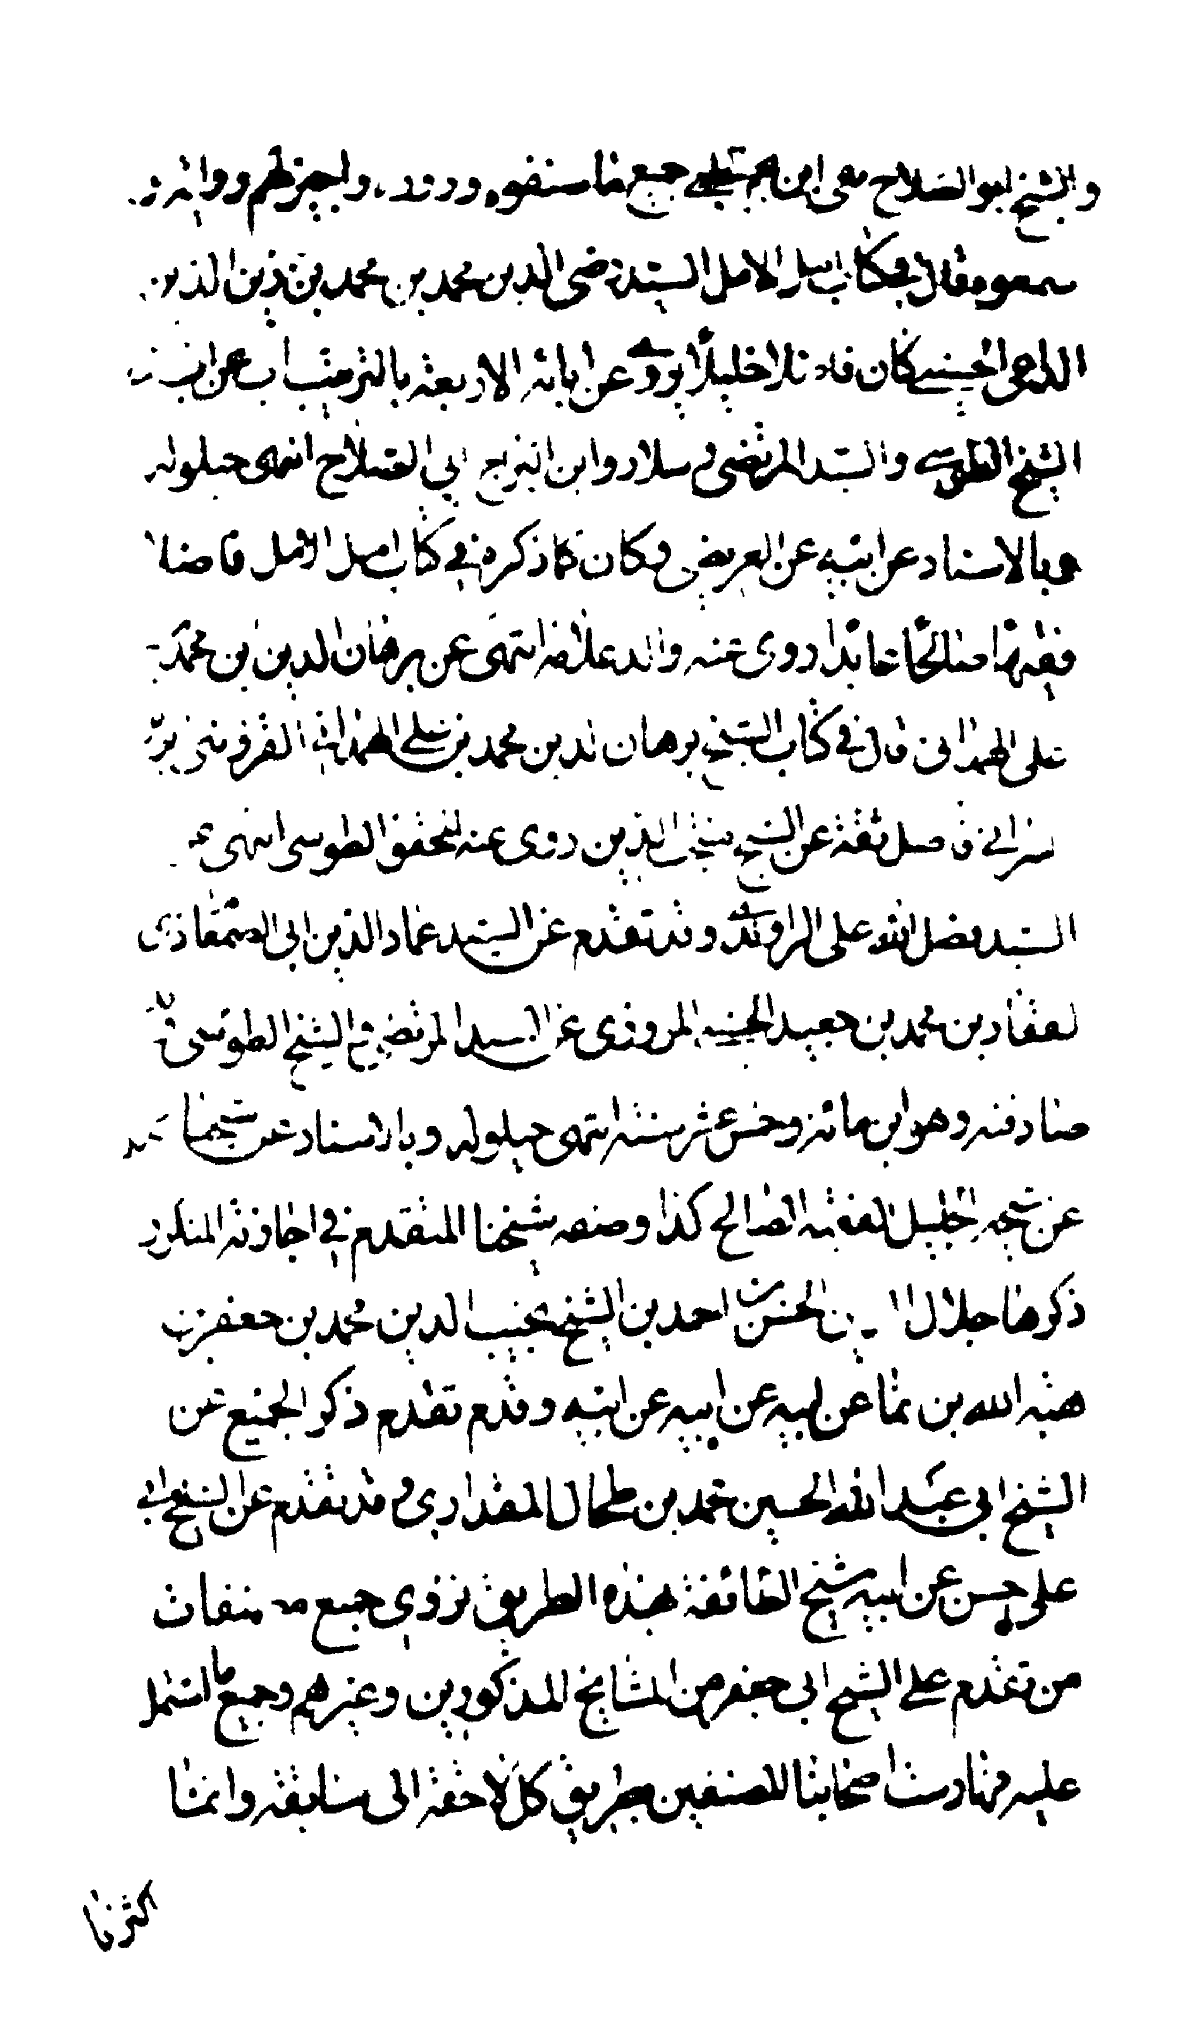 والشيخ ابو الصلاح تقى ابن نجم الحلبي جميع ما صنفوه ورووه واجيز لهم روايته و
سمعوه وقال في كتاب امل الامل السيد رضى الدين محمد بن محمد بن زين الدين
الداعى الحسيني كان فاضلا جليلا يروى عن ابائه الاربعة بالترتيب عن
الشيخ الطوسي والسيد المرتضى وسلار وابن البراج ابي الصلاح انتهى حيلولة
وبالاسناد عن ابيه عن العريضى وكان كما ذكره في كتاب امل الامل فاضلا
فقيها صالحا عابدا روى عنه والد علامه انتهى عن برهان الدين بن محمد بن
على الهمدانى قال في كتاب الشيخ برهان الدين محمد بن علي الهمداني القزوينى
الرازي فاضل ثقة عن الشيخ منتجب الدين روى عنه المحقق الطوسى انتهى عن
السيد فضل الله على الراوندي وقد تقدم عن السيد عماد الدين ابى الصمصام ذى
لفقار بن محمد بن معبد الحسنى المروزى عن السيد المرتضى والشيخ الطوسى
صادفته وهو ابن مائة وخمس عشر سنة انتهى حيلولة وبالاسناد عن شيخنا
عن شيخه الجليل الفقيه الصالح كذا وصفه شيخنا المتقدم في اجازته المذكور
ذكرها جلال الدين الحسن بن احمد بن الشيخ نجيب الدين محمد بن جعفر بن
هبة الله بن نما عن ابيه عن ابيه عن ابيه وقدم تقدم ذكر الجميع عن
الشيخ ابي عبد الله الحسين محمد بن طحال المقدادي وقد تقدم عن الشيخ ابي
على حسن عن ابيه شيخ الطائفة بهذه الطريق نروي جميع مصنفات
من تقدم على الشيخ ابى جعفر من المشايخ المذكورين وغيرهم وجميع ما اشتمل
عليه فهارست اصحابنا المصنفين بطريق كل لاحقة الى سابقة وانما
اكثرنا